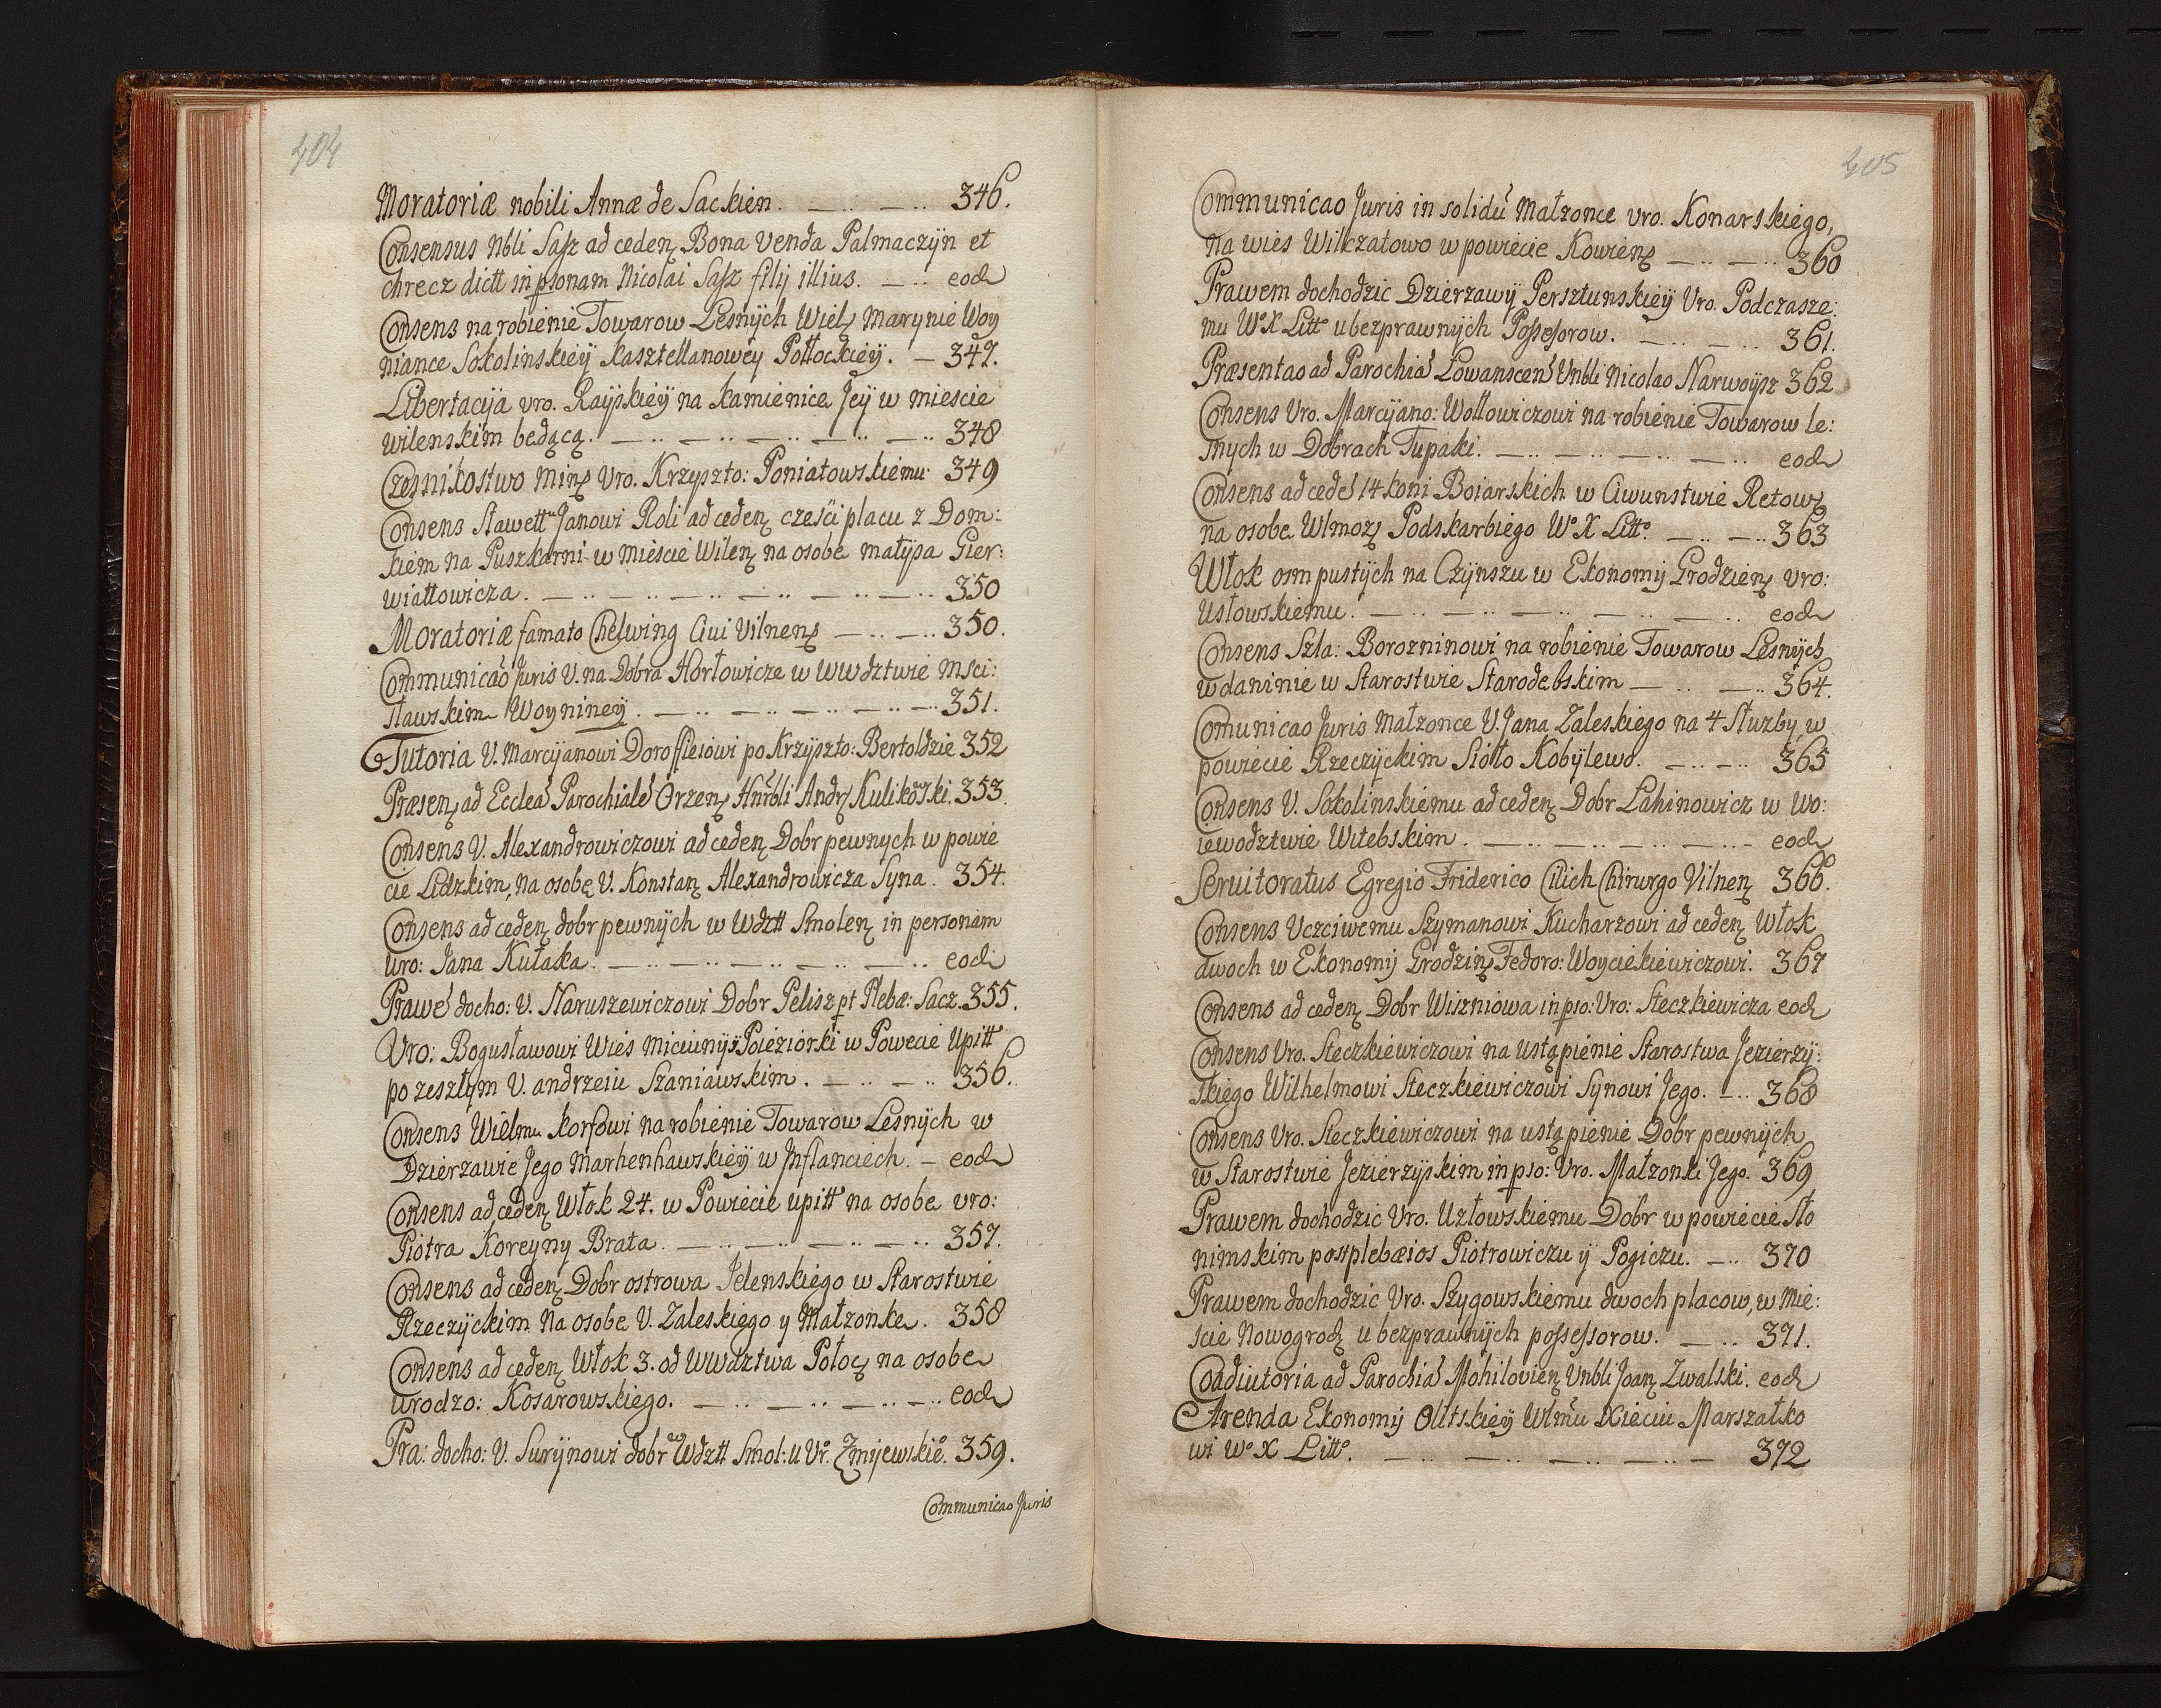 404
Moratoriæ nobili Annæ de Sackien. — .. — .. 346.
Consensus Nbli Sasz ad ceden Bona Venda Palmaczÿn et
chrecz dictt in psonam Nicolai Sasz filij illius. — .. eod
Consens na robienie Towarow Lesnÿch Wiel Marynie Woy
niance Sokolinskiéÿ kasztellanowéy Połłockiéÿ. — 347.
Libertacÿa vro. Raÿskiéÿ na kamienice Jéÿ w mieście
wilenskim będącą. — .. — .. — .. — .. — .. 348
Czesnikostwo Min Vro. Krzyszto: Poniatowskiému 349
Consens Sławett Janowi Roli ad ceden cześci placu z Dom:
kiem na Puszkarni w mieście Wilen na osobe matÿsa Gier:
wiałłowicza. — .. — .. — .. — .. — .. — .. 350
Moratoriæ famato Chelwing Ciui Vilnens — .. — .. 350.
Communicao Juris V. na Dobra Horłowicze w wwdztwie Msci:
sławskim Woyninéÿ. — .. — .. — .. — .. — .. 351.
Tutoria V. Marcÿanowi Doroffieiowi po Krzÿszto: Bertoldzie 352
Præsen ad Ecclea Parochiale Orzen Hnrbli Andr Kulikowski. 353.
Consens V. Alexandrowiczowi ad ceden Dobr pewnych w powie
cie Lidzkim, na osobę V. Konstan Alexandrowicza Syna. 354.
Consens ad ceden dobr pewnÿch w Wdztt Smolen in personam
uro: Jana Kułaka. — .. — .. — .. — .. — .. eod
Prawe docho: V. Naruszewiczowi Dobr Pelisz pt Plebæ: Sacz. 355.
Vro: Bogusławowi Wieś Miciunÿ ÿ Poieziorki w Powecie Upitt
po zeszłÿm V. andrzeiu Szaniawskim. — .. — .. 356.
Consens Wielmu korfowi na robienie Towarow Lesnÿch w
Dzierzawie Jego Marhenhawskiéÿ w Jnflanciech. — eod
Consens ad ceden Włok 24. w Powiecie upitt na osobe vro:
Piotra Koreyny Brata. — .. — .. — .. — .. 357.
Consens ad ceden Dobr ostrowa Jelenskiego w Starostwie
Rzeczÿckim Na osobe V. Zaleskiego y Małzonke. 358
Consens ad ceden Włok 3. od Wwdztwa Połoc na osobe
urodzo: Kosarowskiego. — .. — .. — .. — .. eod
Pra: docho: V. Surÿnowi dobr w Wdztt Smol: u Vr. Zmijewskie. 359.
Communicao Juris
405
Communicao Juris in solidu Małzonce vro. Konarskiego,
na wieś Wilczatowo w powiecie Kowiens — .. — .. 360
Prawem dochodzic Dzierzawÿ Persztunskiéÿ Vro. Podczasze:
mu W° X Litt° u bezprawnÿch Possessorow. — .. — .. 361.
Præsentao ad Parochia Lowanscen Vnbli Nicolao Narwoÿsz 362
Consens Vro. Marcÿano: Wołłowiczowi na robienie Towarow le:
snych w Dobrach Tupaki. — .. — .. — .. — .. eod
Consens ad cede 14 koni Boiarskich w Ciwunstwie Retow
na osobe Wlmoz Podskarbiego W° X Litt° — .. — .. 363
Włok osm pustÿch na Czÿnszu w Ekonomij Grodzien vro:
Usłowskiému. — .. — .. — .. — .. — .. eod
Consens Szla: Borozninowi na robienie Towarow Lesnÿch
w daninie w Starostwie Starodebskim — .. — .. 364.
Comunicao Juris Małzonce V. Jana Zaleskiego na 4 Służby, w
powiecie Rzeczÿckim Siołło Kobÿlewo. — .. — .. 365
Consens V. Sokolinskiému ad ceden Dobr Lahinowicz w Wo:
iewodztwie Witebskim. — .. — .. — .. — .. eod
Seruitoratus Egregio Friderico Cilich Chirurgo Vilnen 366.
Consens Uczciwemu Szymanowi Kucharzowi ad ceden Włok
dwoch w Ekonomij Grodzin Fedoro: Woycieckiewiczowi. 367
Consens ad ceden Dobr Wiszniowa in pso: Vro: Steczkiewicza eod
Consens Vro. Steczkiewiczowi na ustąpienie Starostwa Jezierzÿ:
skiego Wilhelmowi Steczkiewiczowi Synowi Jego. — .. 368
Consens Vro. Steczkiewiczowi na ustąpienie Dobr pewnÿch
w Starostwie Jezierzÿskim in pso: Vro. Małzonki Jego. 369
Prawem dochodzic Vro. Uzłowskiemu Dobr w powiecie Sło
nimskim post plebæios Piotrowiczu ÿ Pogiczu. — .. 370
Prawem dochodzic Vro. Szygowskiému dwoch placow, w Mie:
scie Nowogrod u bezprawnÿch possessorow. — .. 371.
Coadiutoria ad Parochia Mohilovien Vnbli Joan Zwalski. eod
Arenda Ekonomij Olitskiéÿ Wlmu Xieciu Marszałko
wi W° X Litt°. — .. — .. — .. — .. — 372